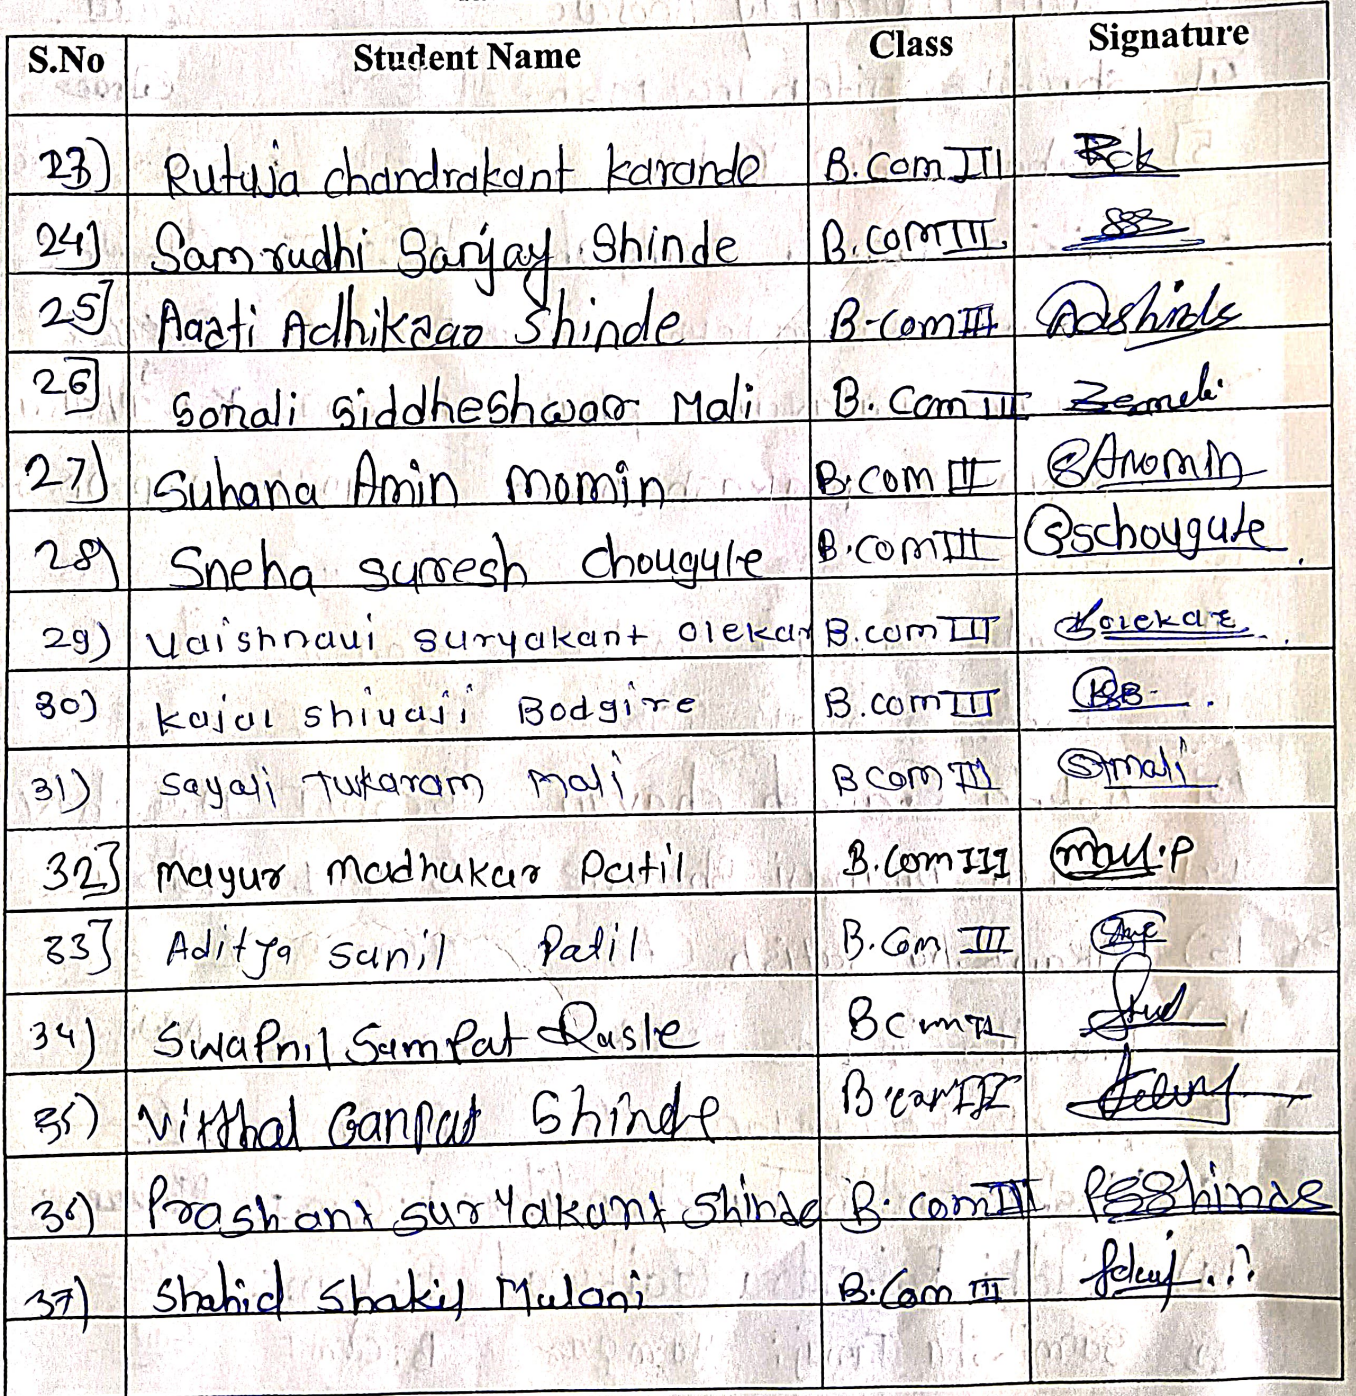 S.No Student Name Class Signature
23) Rutuja chandrakant karande B.Com III Rck
24) Samrudhi Sanjay Shinde B.com III SSS
25) Aarti Adhikrao Shinde B-com III Aashinde
26) Sonali Siddheshwar Mali B. Com III
27) Suhana Amin momin B.com III SAmomin
28) Sneha suresh chougule B.com III Sschougule
29) Vaishnavi suryakant olekar B.com III olekar
30) kajal shivaji Bodgire B.com III KSB
31) sayali Tukaram mali B com III Stmali
32) mayur madhukar Patil B.Com III may.P
33) Aditya sunil Patil B.Com III
34) Swapnil Sampat Rasle B com III
35) Vitthal Ganpat Shinde B com III
36) Prashant suryakant shinde B. com III PSShinde
37) Shahid Shakil Mulani B.Com III